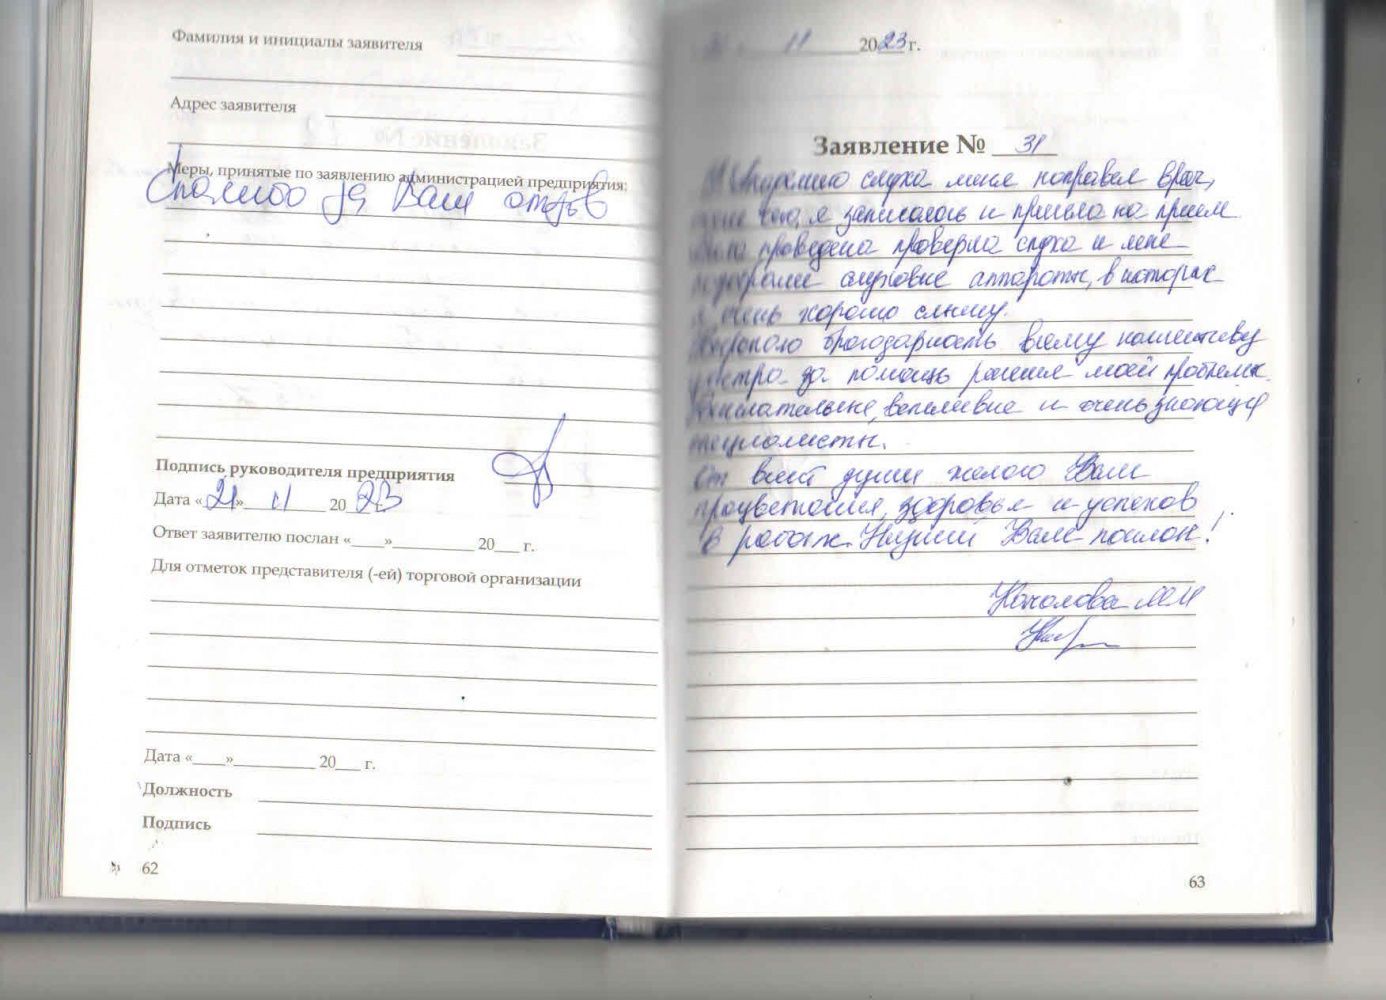 Фамилия и инициалы заявителя
Адрес заявителя
Меры, принятые по заявлению администрацией предприятия:
Спасибо за Ваш отзыв
Подпись руководителя предприятия
Дата «21» 11 2023
Ответ заявителю послан «___»_________ 20___ г.
Для отметок представителя (-ей) торговой организации
Дата «___»_________ 20___ г.
Должность
Подпись
62
11 2023 г.
Заявление № 31
слуха меня направил врач,
я записалась и пришла на прием
проведена проверка слуха и мне
слуховые аппараты, в которых
я очень хорошо слышу.
благодарность всему коллективу
центра за помощь решения моей проблемы.
вежливые и очень знающие
специалисты.
От всей души желаю Вам
процветания, здоровья и успехов
в работе. Низкий Вам поклон!
63